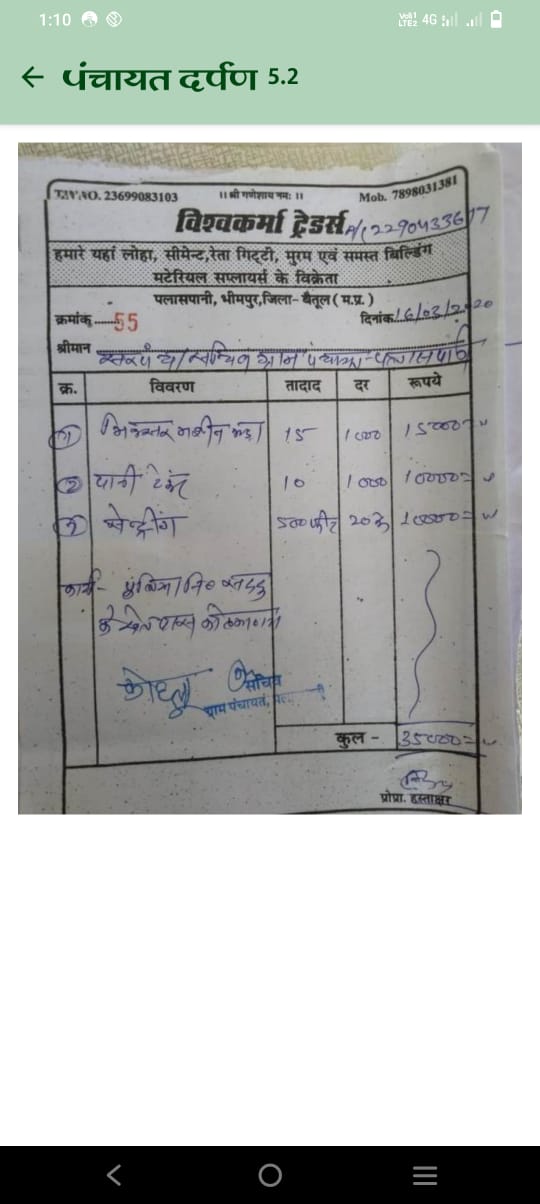 1:10
VoLTE2 4G
← पंचायत दर्पण 5.2
TIN.NO. 23699083103 ।। श्री गणेशाय नमः ।। Mob. 7898031381
विश्वकर्मा ट्रेडर्स A/C 2290433617
हमारे यहां लोहा, सीमेन्ट,रेता गिट्टी, मुरम एवं समस्त बिल्डिंग
मटेरियल सप्लायर्स के विक्रेता
पलासपानी, भीमपुर,जिला- बैतूल ( म.प्र. )
क्रमांक 55 दिनांक 16/03/2020
श्रीमान सरपंच/सचिव ग्राम पंचायत पलासपानी
क्र. विवरण तादाद दर रूपये
① मिक्स्चर मशीन भाड़ा 15 1000 15000=
② पानी टेंकर 10 1000 10000=
③ सेन्ट्रींग 500 फीट 20रु 10000=
कार्य- पुलिया
सचिव
ग्राम पंचायत,
कुल - 35000=
प्रोप्रा. हस्ताक्षर